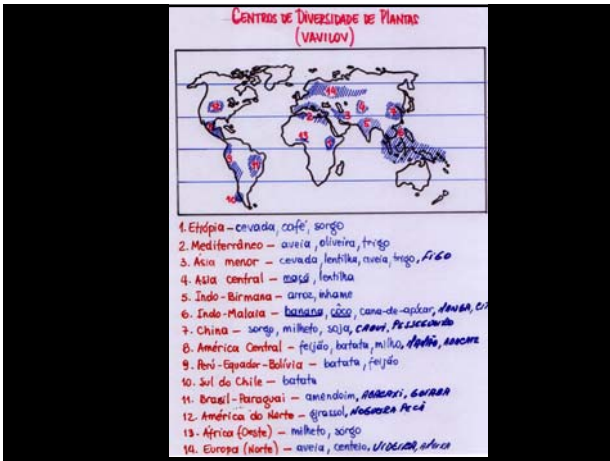 CENTROS DE DIVERSIDADE DE PLANTAS
(VAVILOV)
1. Etiópia – cevada, café, sorgo
2. Mediterrâneo – aveia, oliveira, trigo
3. Ásia menor – cevada, lentilha, aveia, trigo, FIGO
4. Ásia central – maçã, lentilha
5. Indo-Birmana – arroz, inhame
6. Indo-Malaia – banana, côco, cana-de-açúcar, MANGA,
7. China – sorgo, milheto, soja, CAQUI, PESSEGUEIRO
8. América Central – feijão, batata, milho, MAMÃO, ABACATE
9. Perú-Equador-Bolívia – batata, feijão
10. Sul do Chile – batata
11. Brasil-Paraguai – amendoim, ABACAXI, GOIABA
12. América do Norte – girassol, NOGUEIRA PECÃ
13. África (Oeste) – milheto, sorgo
14. Europa (Norte) – aveia, centeio, VIDEIRA,